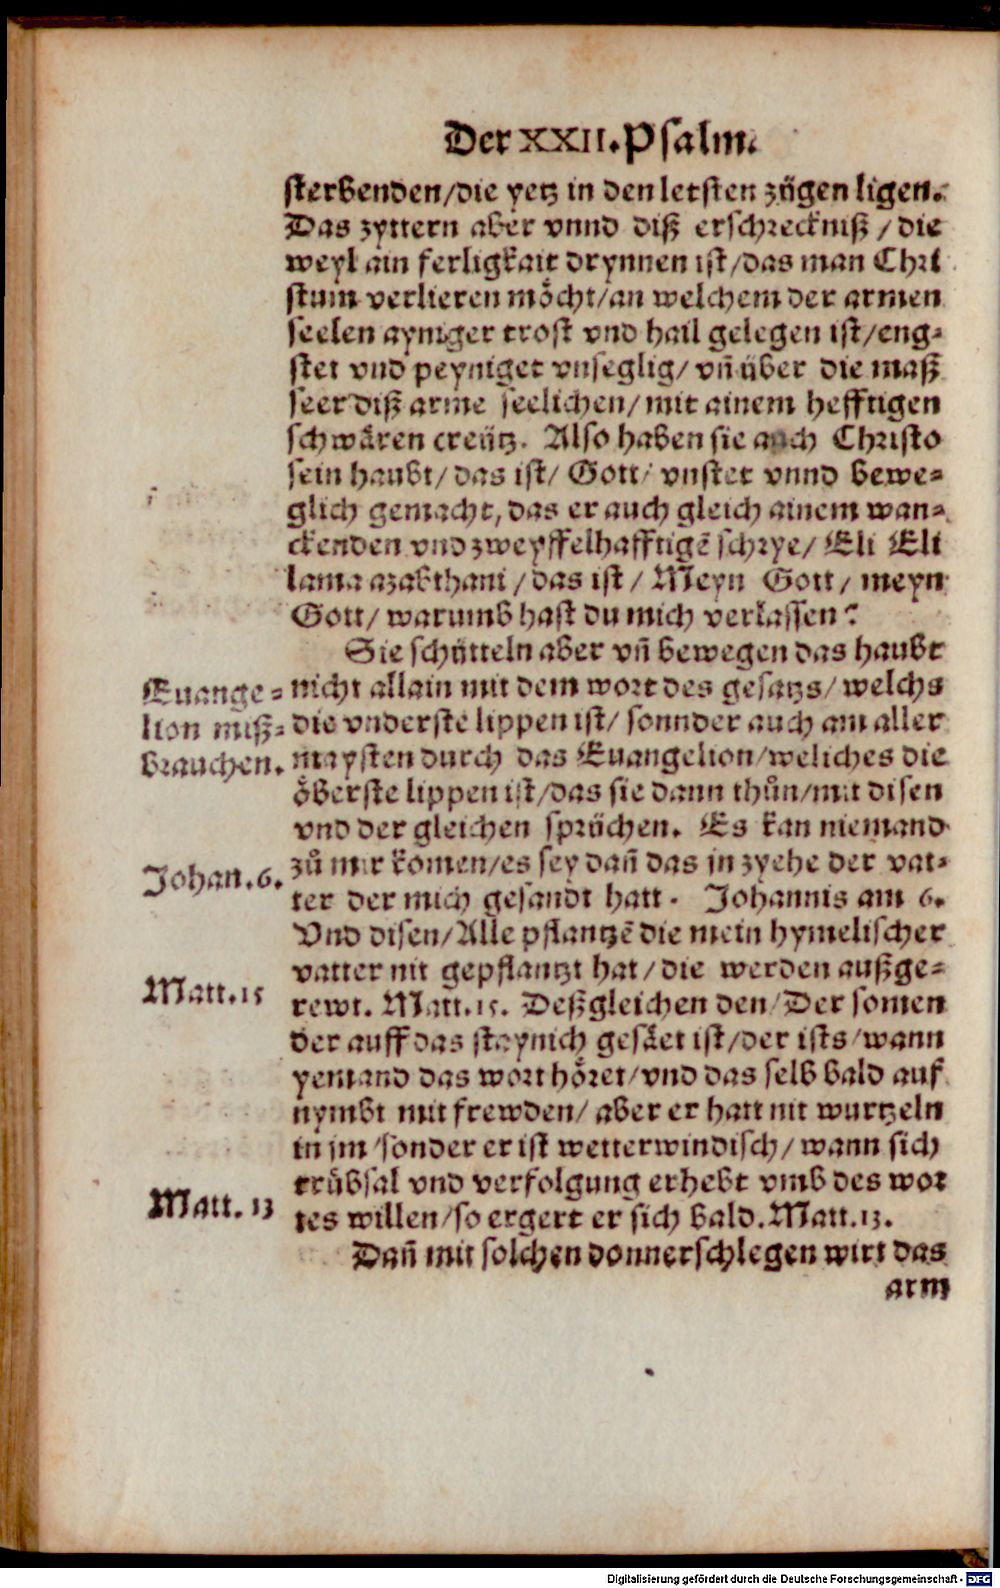 Der XXII. Psalm.
sterbenden/die yetz in den letsten zügen ligen.
Das zyttern aber vnnd diß erschreckniß / die
weyl ain ferligkait drynnen ist/das man Chri
stum verlieren möcht/an welchem der armen
seelen ayniger trost vnd hail gelegen ist/eng-
stet vnd peyniget vnseglig/ vñ über die maß
seer diß arme seelichen/ mit ainem hefftigen
schwären creütz. Also haben sie auch Christo
sein haubt/ das ist/ Gott/ vnstet vnnd bewe-
glich gemacht, das er auch gleich ainem wan-
ckenden vnd zweyffelhafftigē schrye/ Eli Eli
lama azabthani / das ist / Meyn Gott / meyn
Gott/ warumb hast du mich verlassen?
Sie schütteln aber vñ bewegen das haubt
Euange-
lion miß-
brauchen.
nicht allain mit dem wort des gesatzs/ welchs
die vnderste lippen ist/ sonnder auch am aller
maysten durch das Euangelion/weliches die
öberste lippen ist/das sie dann thůn/mit disen
vnd der gleichen sprüchen. Es kan niemand
Johan. 6.
zů mir komen/es sey dañ das jn zyehe der vat-
ter der mich gesandt hatt. Johannis am 6.
Vnd disen/Alle pflantzē die mein hymelischer
Matt. 15
vatter nit gepflantzt hat / die werden außge-
rewt. Matt. 15. Deßgleichen den/Der somen
der auff das staynich gesäet ist/der ists/wann
yemand das wort höret/vnd das selb bald auf
nymbt mit frewden/ aber er hatt nit wurtzeln
in jm/sonder er ist wetterwindisch/ wann sich
Matt. 13
trübsal vnd verfolgung erhebt vmb des wor
tes willen/so ergert er sich bald. Matt. 13.
Dañ mit solchen donnerschlegen wirt das
arm
Digitalisierung gefördert durch die Deutsche Forschungsgemeinschaft - DFG